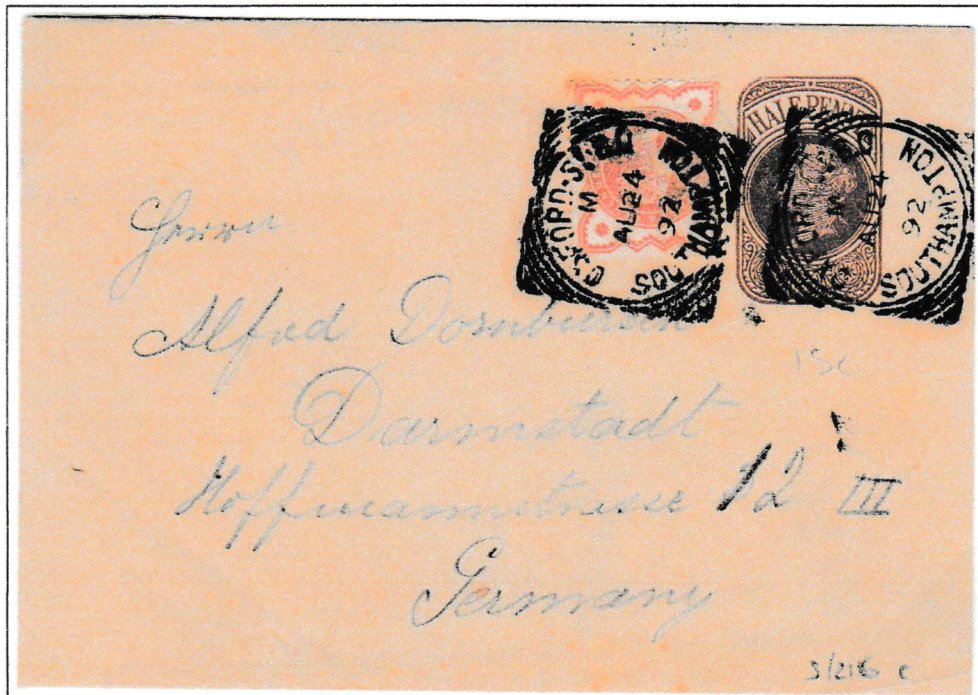 HALF PENNY
OXFORD·ST
SOUTHAMPTON
M
AU 24
92
OXFORD
SOUTHAMPTON
M
AU 24
92
Herrn
Alfred
13c
Darmstadt
Hoffmannstrasse 12 III
Germany